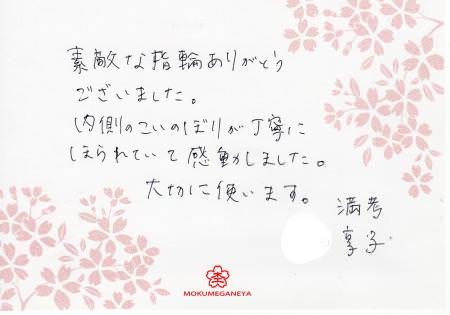 素敵な指輪ありがとう
ございました。
内側のこいのぼりが丁寧に
ほられていて感動しました。
大切に使います。
満考
享子
MOKUMEGANEYA